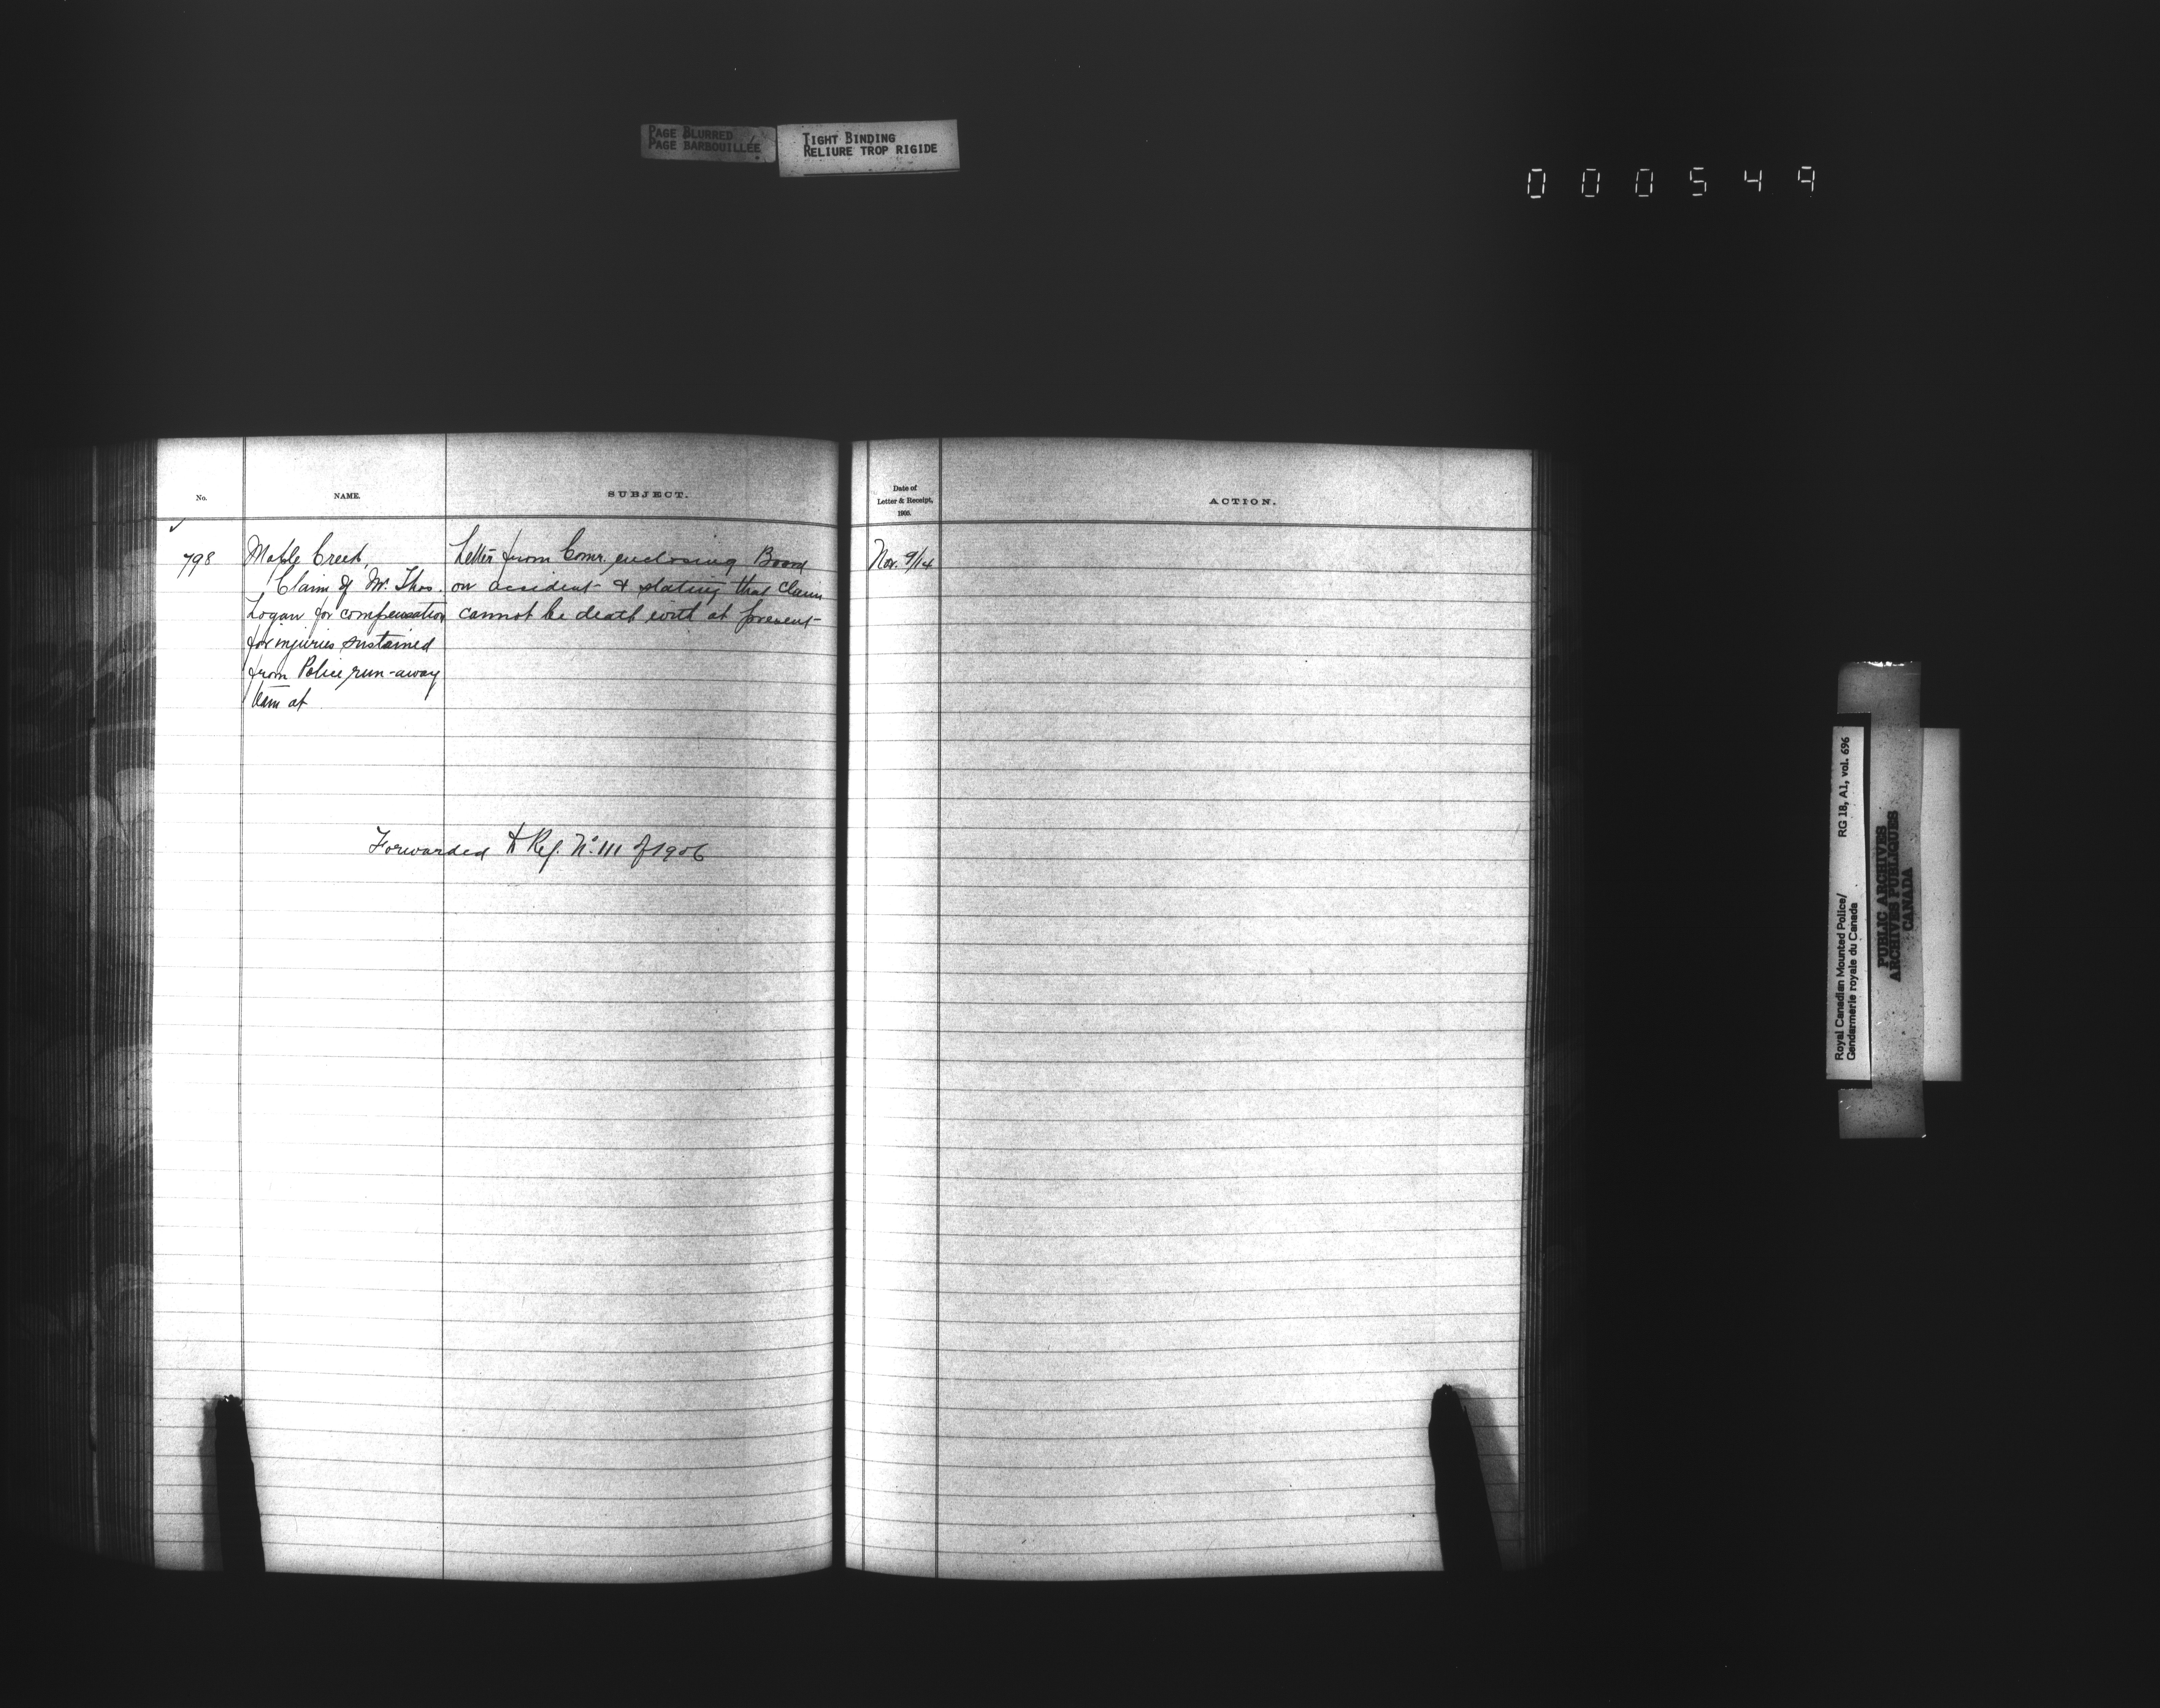 PAGE BLURRED
PAGE BARBOUILLÉE
TIGHT BINDING
RELIURE TROP RIGIDE
000549
No.
NAME.
SUBJECT.
Date of
Letter & Receipt,
1905.
ACTION.
798
Maple Creek
Claim of Mr. Thos.
Logan for compensation
for injuries sustained
from Police run-away
team at
Letter from Comr. enclosing Board
on accident & stating that claim
cannot be dealt with at present
Nov. 9/14
Forwarded to Ref. No. 111 of 1906
Royal Canadian Mounted Police/
Gendarmerie royale du Canada
RG 18, A1, vol. 696
PUBLIC ARCHIVES
ARCHIVES PUBLIQUES
CANADA